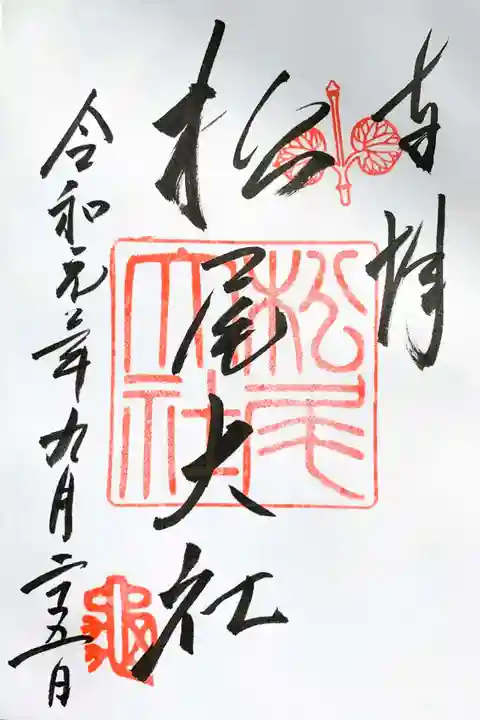 奉拝
松尾大社
令和元年九月二十五日
松尾大社